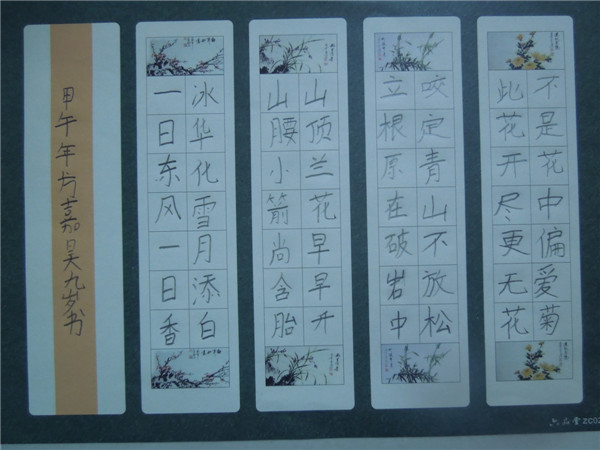 不是花中偏爱菊
此花开尽更无花
咬定青山不放松
立根原在破岩中
山顶兰花早早开
山腰小箭尚含胎
冰华化雪月添白
一日东风一日香
甲午年方嘉昊九岁书
六品堂 ZC02